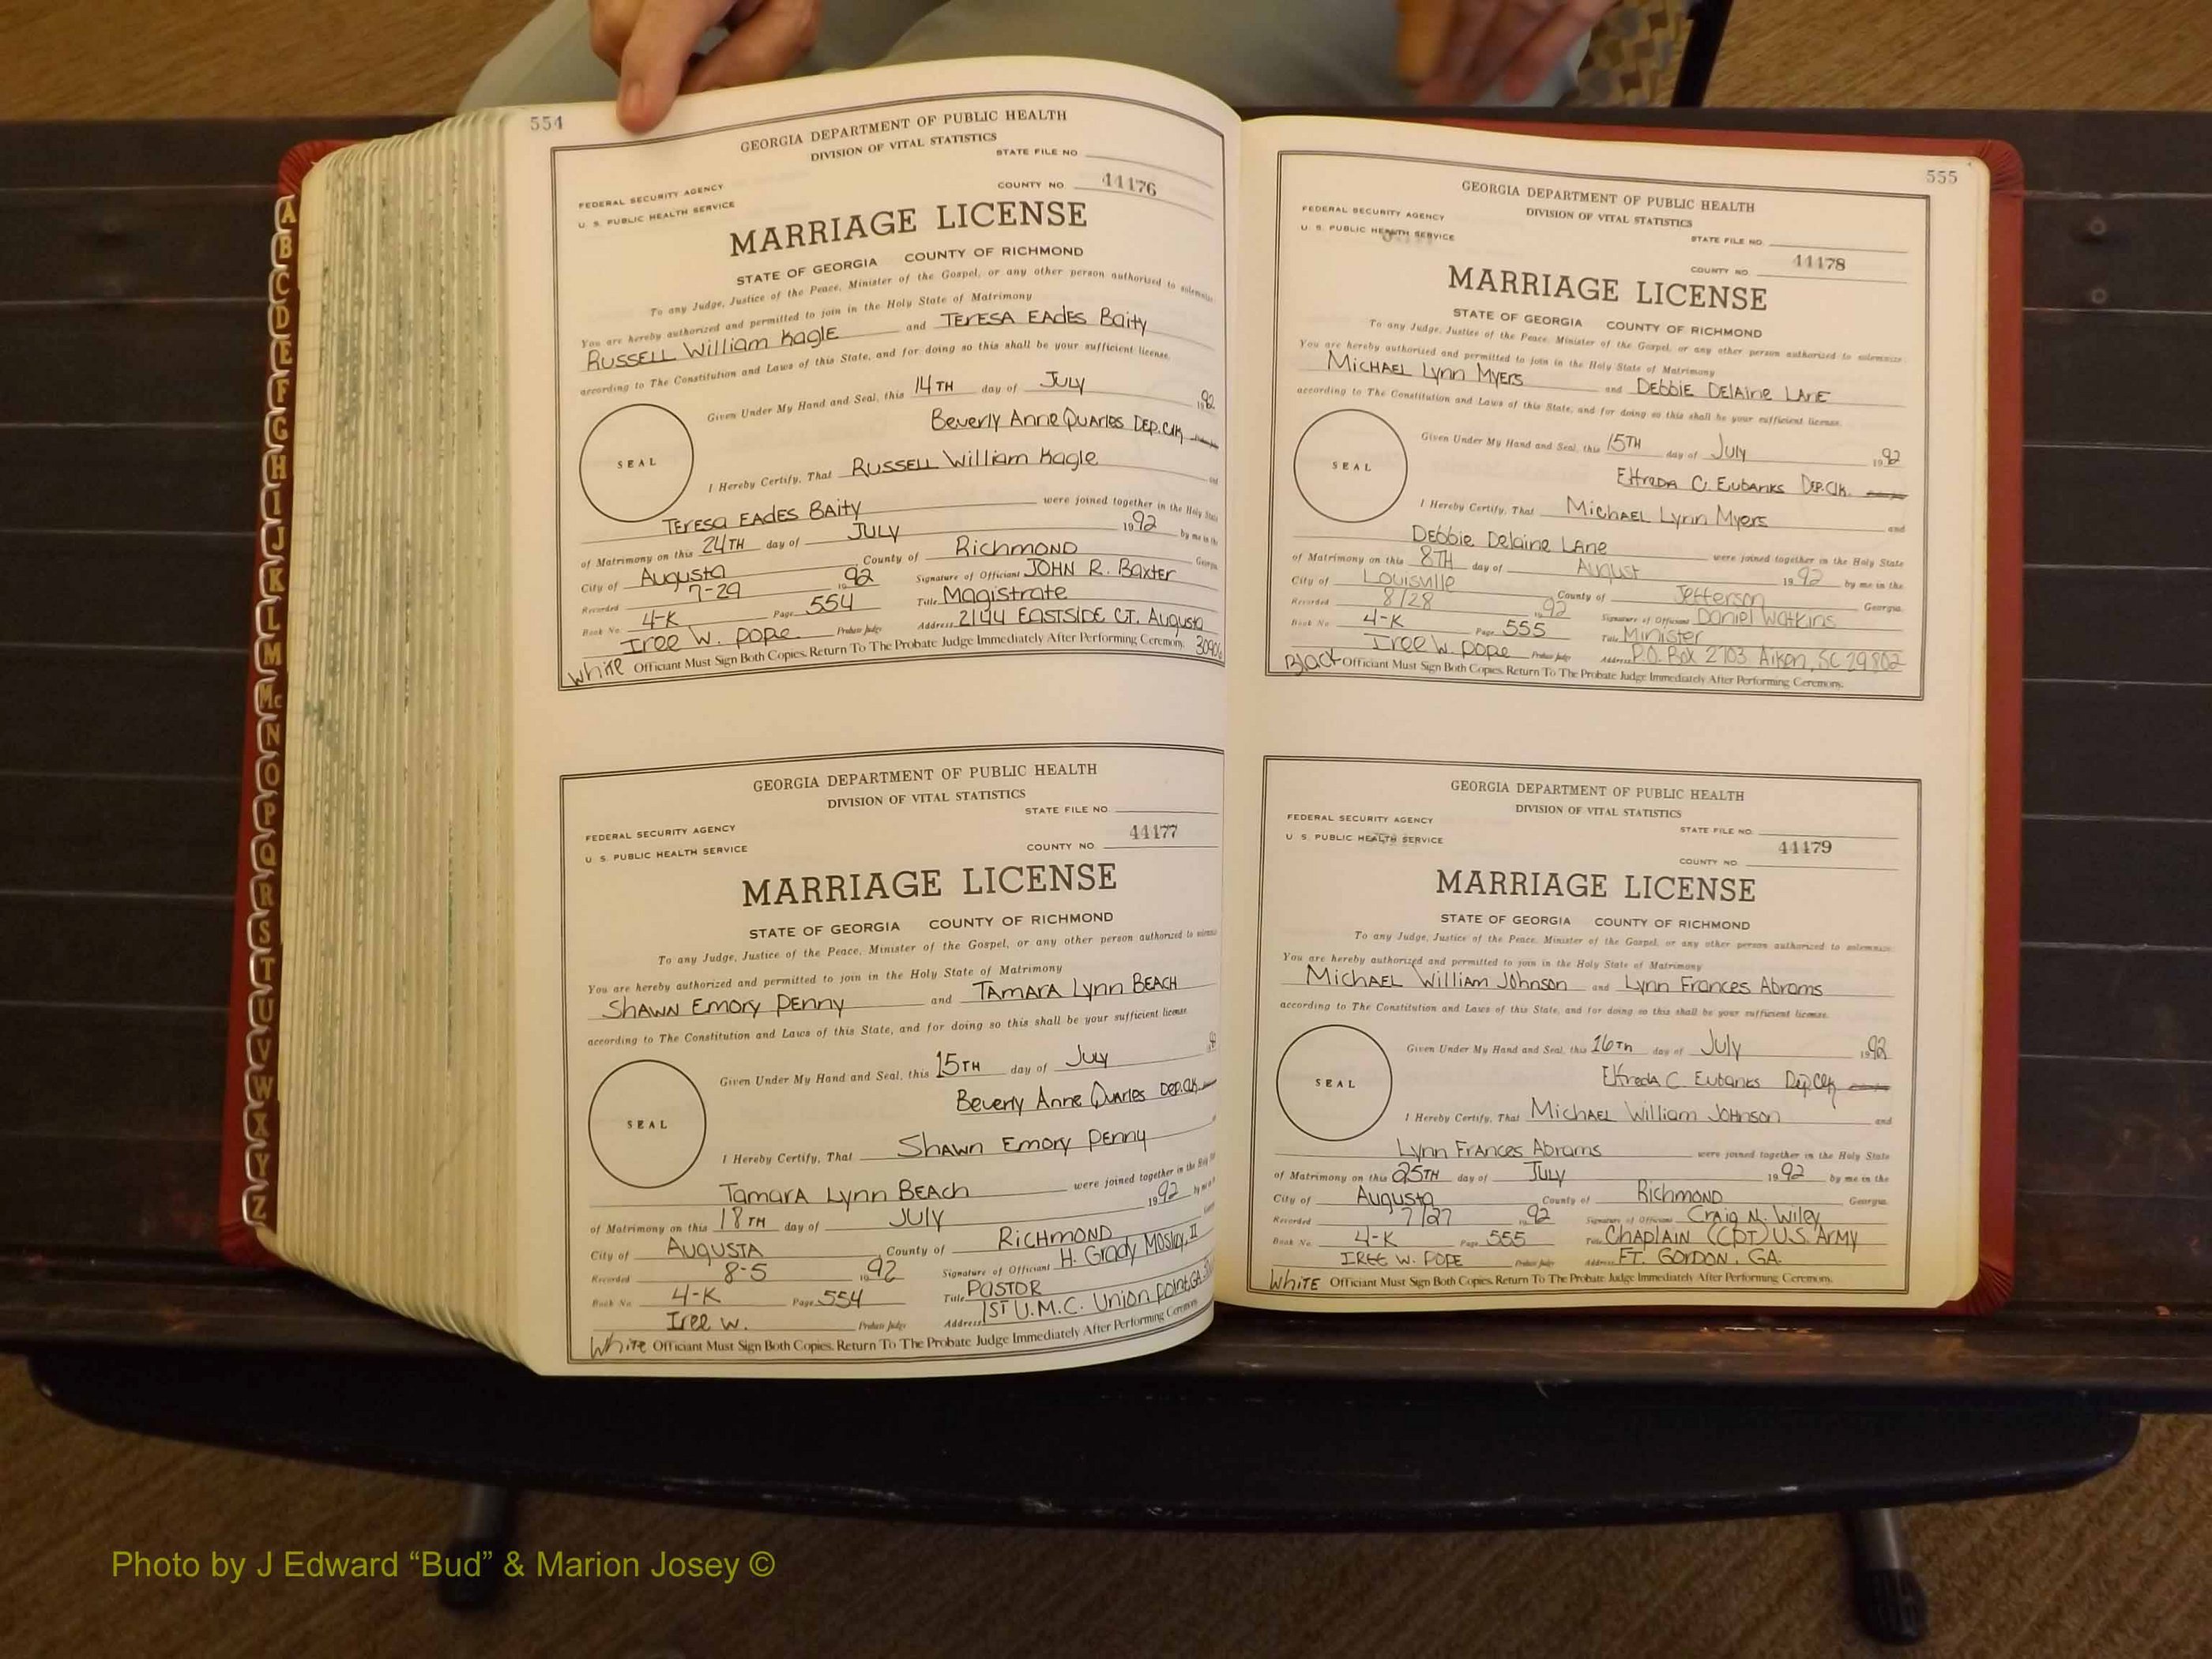 554
GEORGIA DEPARTMENT OF PUBLIC HEALTH
DIVISION OF VITAL STATISTICS
STATE FILE NO
FEDERAL SECURITY AGENCY
U. S. PUBLIC HEALTH SERVICE
COUNTY NO. 44176
MARRIAGE LICENSE
STATE OF GEORGIA COUNTY OF RICHMOND
To any Judge, Justice of the Peace, Minister of the Gospel, or any other person authorized to solemnize
You are hereby authorized and permitted to join in the Holy State of Matrimony
RUSSELL William Kagle and TERESA EAdes Baity
according to The Constitution and Laws of this State, and for doing so this shall be your sufficient license.
Given Under My Hand and Seal, this 14TH day of JULY 1992
Beverly Anne Quarles DEP. Clk
SEAL
I Hereby Certify, That RUSSELL William Kagle and
TERESA EAdes BAity were joined together in the Holy State
of Matrimony on this 24TH day of JULY 1992 by me in the
City of Augusta County of RichmOND Georgia
Recorded 7-29 1992 Signature of Officiant JOHN R. Baxter
Book No. 4-K Page 554 Title Magistrate
Iree W. pope Probate Judge Address 2144 EASTSIDE CT. Augusta 30906
White Officiant Must Sign Both Copies. Return To The Probate Judge Immediately After Performing Ceremony.
GEORGIA DEPARTMENT OF PUBLIC HEALTH
DIVISION OF VITAL STATISTICS
STATE FILE NO.
FEDERAL SECURITY AGENCY
U. S. PUBLIC HEALTH SERVICE
44177
COUNTY NO.
MARRIAGE LICENSE
STATE OF GEORGIA COUNTY OF RICHMOND
To any Judge, Justice of the Peace, Minister of the Gospel, or any other person authorized to solemnize
You are hereby authorized and permitted to join in the Holy State of Matrimony
SHAWN Emory Penny and TAMARA Lynn BEACH
according to The Constitution and Laws of this State, and for doing so this shall be your sufficient license.
Given Under My Hand and Seal, this 15TH day of July
Beverly Anne Quarles DEP. Clk
SEAL
I Hereby Certify, That Shawn Emory Penny
TamarA Lynn BEAch were joined together in the Holy
of Matrimony on this 18TH day of JULY 1992 by me
City of AUGUSTA County of RicHmOND
Recorded 8-5 1992 Signature of Officiant H. Grady Mosley, II
Book No. 4-K Page 554 Title PASTOR
Iree W. Probate Judge Address 1ST U.M.C. Union point, GA.
White Officiant Must Sign Both Copies. Return To The Probate Judge Immediately After Performing Ceremony.
555
GEORGIA DEPARTMENT OF PUBLIC HEALTH
DIVISION OF VITAL STATISTICS
FEDERAL SECURITY AGENCY
U. S. PUBLIC HEALTH SERVICE
STATE FILE NO.
COUNTY NO. 44178
MARRIAGE LICENSE
STATE OF GEORGIA COUNTY OF RICHMOND
To any Judge, Justice of the Peace, Minister of the Gospel, or any other person authorized to solemnize
You are hereby authorized and permitted to join in the Holy State of Matrimony
MicHAEL Lynn MyERS and DEbbiE DELAine LANE
according to The Constitution and Laws of this State, and for doing so this shall be your sufficient license.
Given Under My Hand and Seal, this 15TH day of July 1992
Elfreda C. Eubanks Dep. Clk.
SEAL
I Hereby Certify, That MichAEL Lynn Myers and
Debbie Delaine LAne were joined together in the Holy State
of Matrimony on this 8TH day of August 1992 by me in the
City of Louisville County of Jefferson Georgia.
Recorded 8/28 1992 Signature of Officiant Daniel Watkins
Book No. 4-K Page 555 Title Minister
Iree W. pope Probate Judge Address P.O. Box 2703 Aiken, SC 29802
Black Officiant Must Sign Both Copies. Return To The Probate Judge Immediately After Performing Ceremony.
GEORGIA DEPARTMENT OF PUBLIC HEALTH
DIVISION OF VITAL STATISTICS
FEDERAL SECURITY AGENCY
U. S. PUBLIC HEALTH SERVICE
STATE FILE NO.
44179
COUNTY NO.
MARRIAGE LICENSE
STATE OF GEORGIA COUNTY OF RICHMOND
To any Judge, Justice of the Peace, Minister of the Gospel, or any other person authorized to solemnize
You are hereby authorized and permitted to join in the Holy State of Matrimony
MichAEL William JOhnson and Lynn Frances Abrams
according to The Constitution and Laws of this State, and for doing so this shall be your sufficient license.
Given Under My Hand and Seal, this 16TH day of July 1992
Elfreda C. Eubanks Dep Clk
SEAL
I Hereby Certify, That MichAEL William JOHnson and
Lynn FrAnces Abrams were joined together in the Holy State
of Matrimony on this 25TH day of JULY 1992 by me in the
City of Augusta County of RichmOND Georgia
Recorded 7/27 1992 Signature of Officiant Craig N. Wiley
Book No. 4-K Page 555 Title ChAplAiN (CPT) U.S. ArMy
IREE W. POPE Probate Judge Address FT. GORDON, GA.
WhiTE Officiant Must Sign Both Copies. Return To The Probate Judge Immediately After Performing Ceremony.
A
B
C
D
E
F
G
H
I
J
K
L
M
Mc
N
O
P
Q
R
S
T
U
V
W
X
Y
Z
Photo by J Edward “Bud” & Marion Josey ©